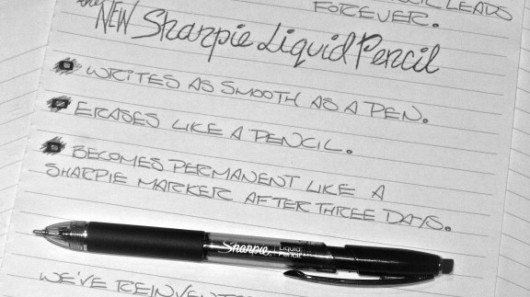 LEADS
FOREVER.
the NEW Sharpie Liquid Pencil
WRITES AS SMOOTH AS A PEN.
ERASES LIKE A PENCIL.
BECOMES PERMANENT LIKE A
SHARPIE MARKER AFTER THREE DAYS.
Sharpie. Liquid
Pencil
WE'VE